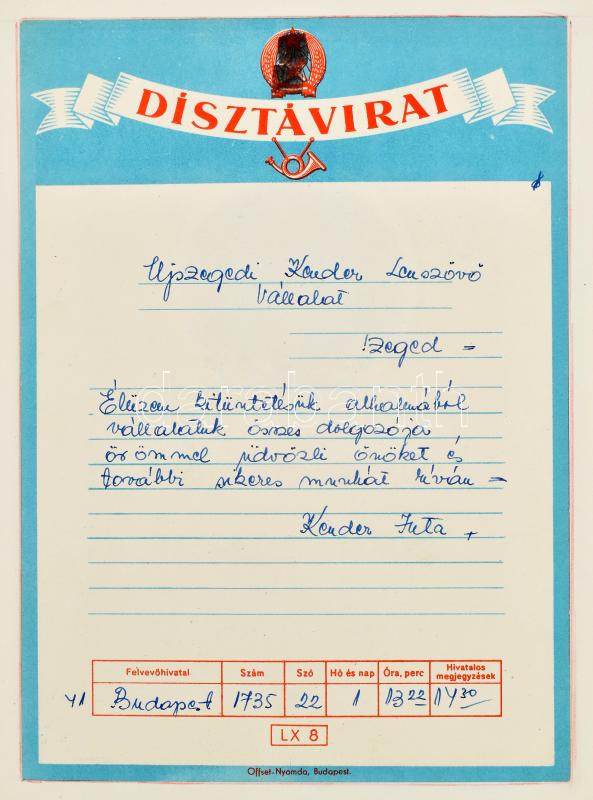 DÍSZTÁVIRAT
Ujszegedi Kender Lenszövő
Vállalat
Szeged =
Élüzem kitüntetésük alkalmából
vállalatunk összes dolgozója
örömmel üdvözli önöket és
további sikeres munkát kíván =
Kender Juta +
Felvevőhivatal Szám Szó Hó és nap Óra, perc Hivatalos megjegyzések
41 Budapest 1735 22 1 13 22 14 30
LX 8
Offset-Nyomda, Budapest.
darabanth